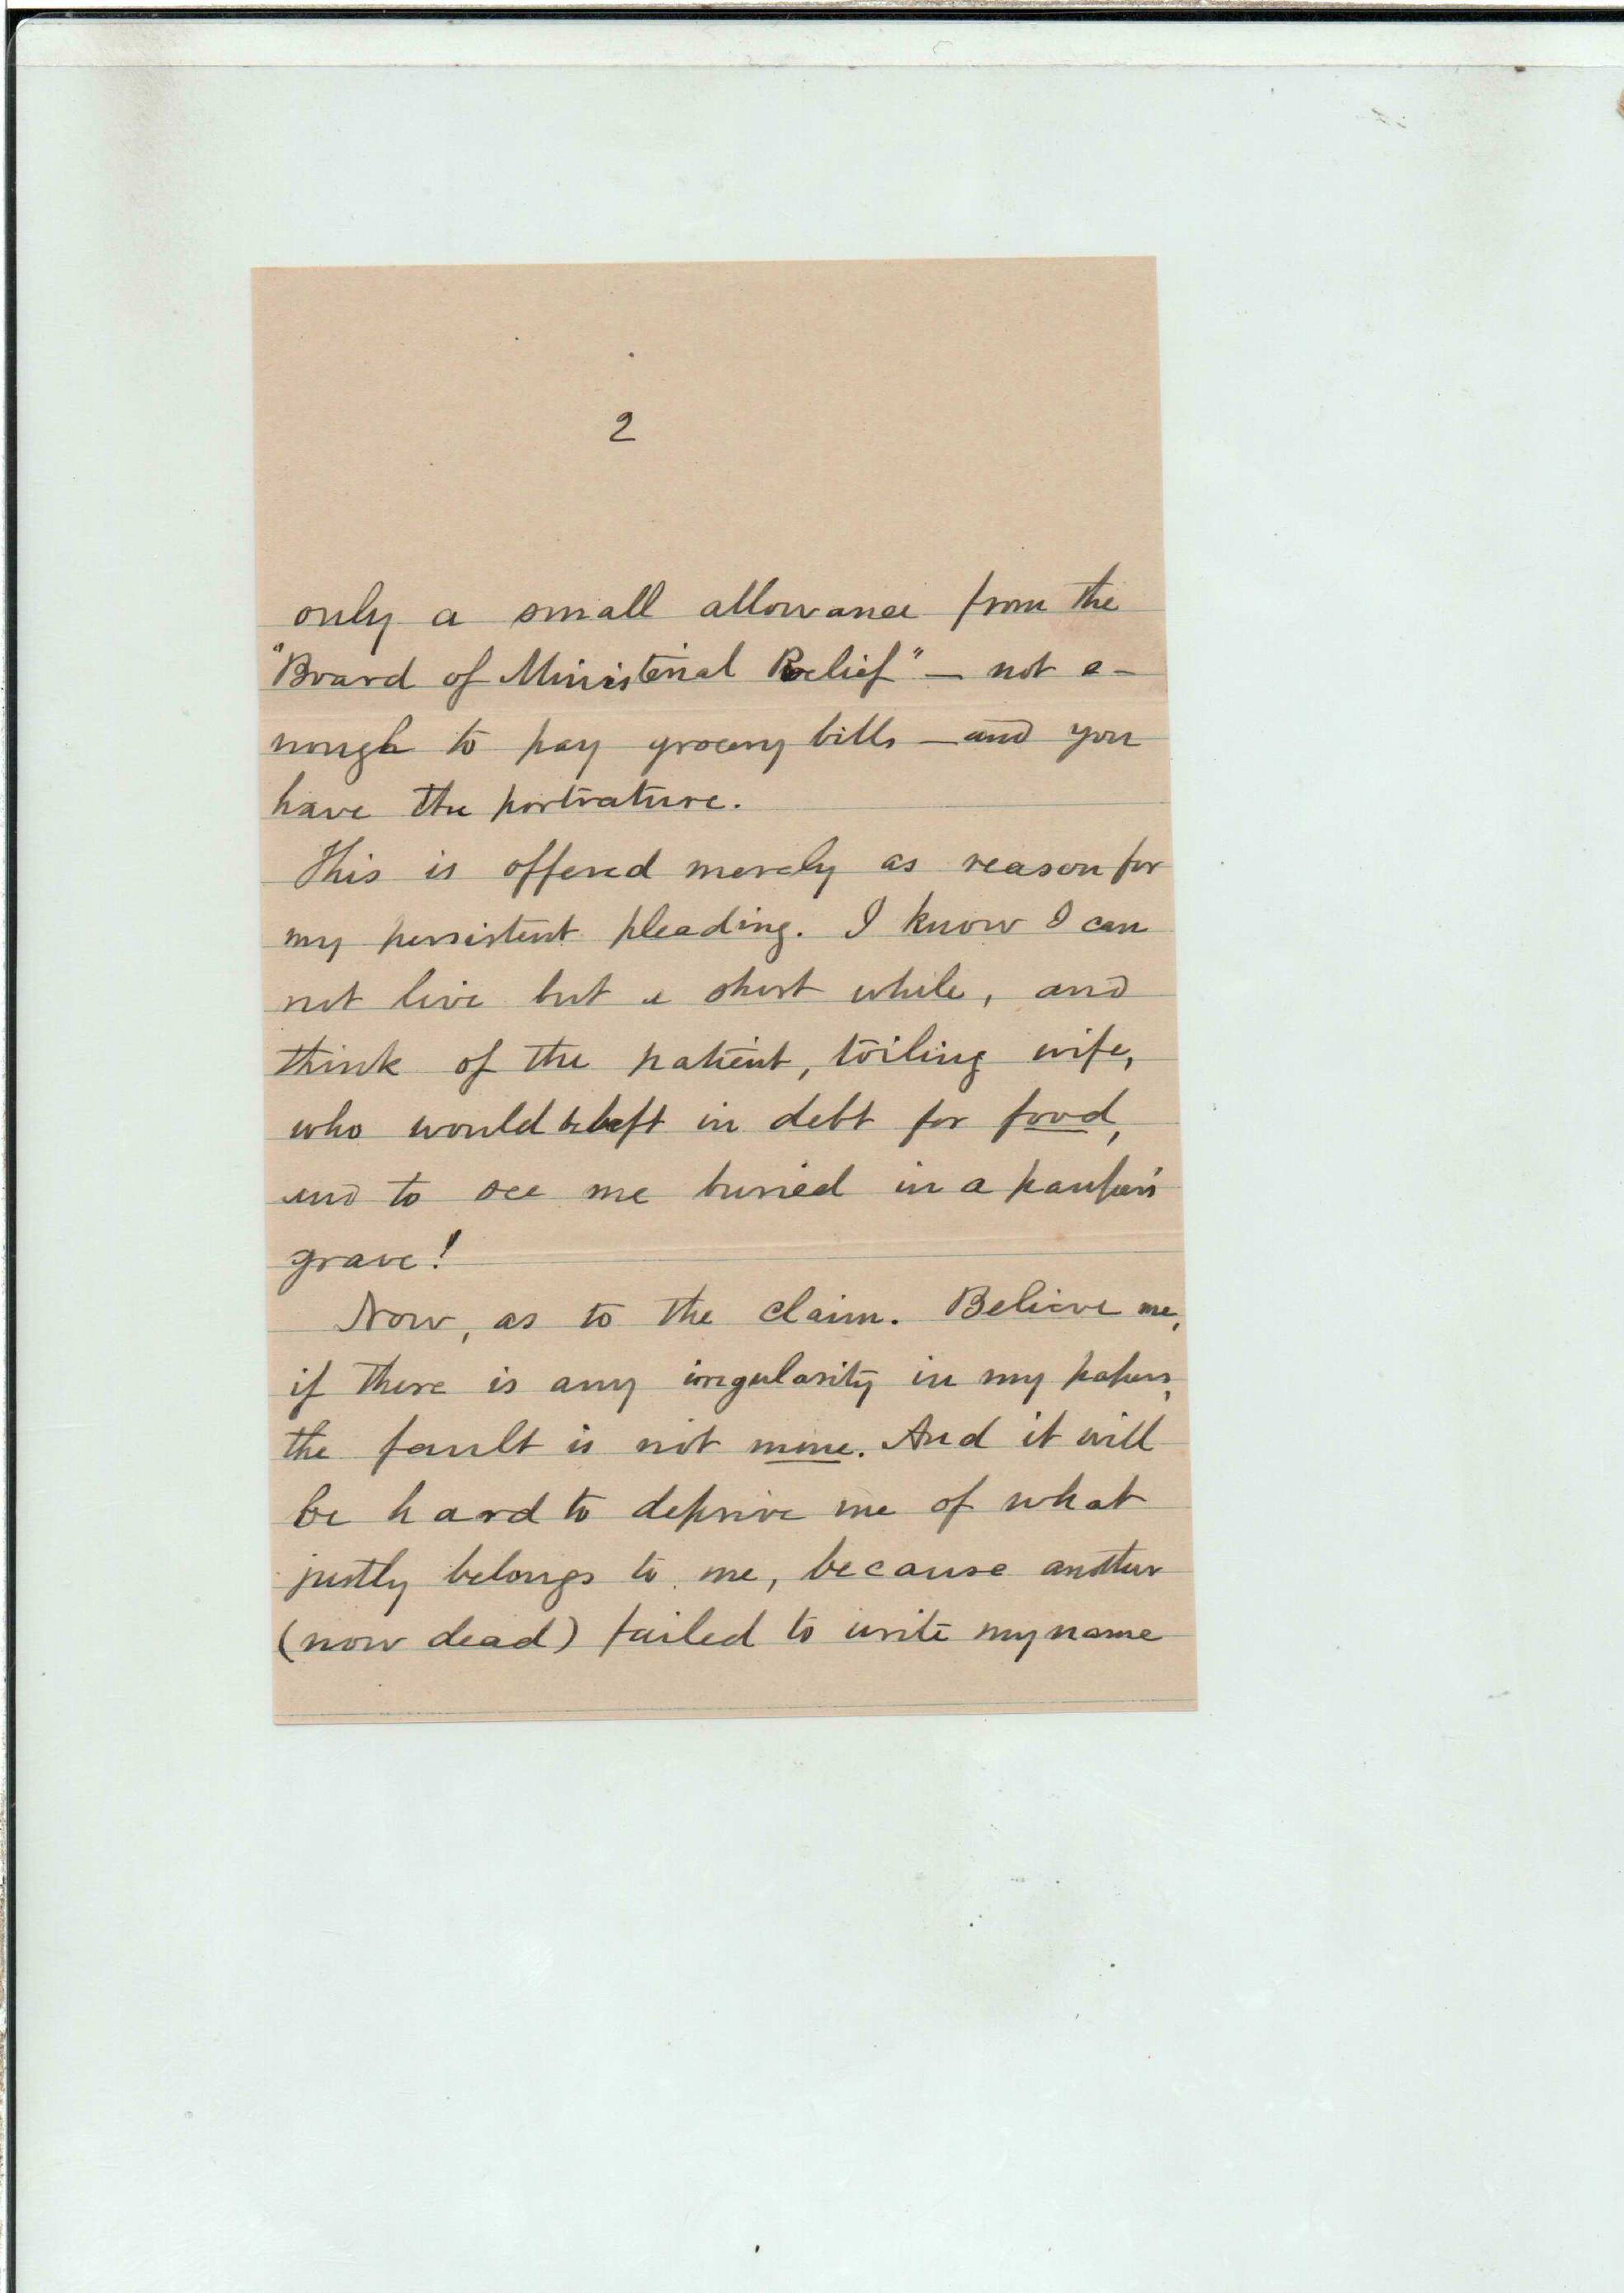 2
only a small allowance from the
"Board of Ministerial Relief" — not e-
nough to pay grocery bills — and you
have the portrature.
This is offered merely as reason for
my persistent pleading. I know I can
not live but a short while, and
think of the patient, toiling wife,
who would be left in debt for food,
and to see me buried in a pauper's
grave!
Now, as to the claim. Believe me,
if there is any irregularity in my papers,
the fault is not mine. And it will
be hard to deprive me of what
justly belongs to me, because another
(now dead) failed to write my name